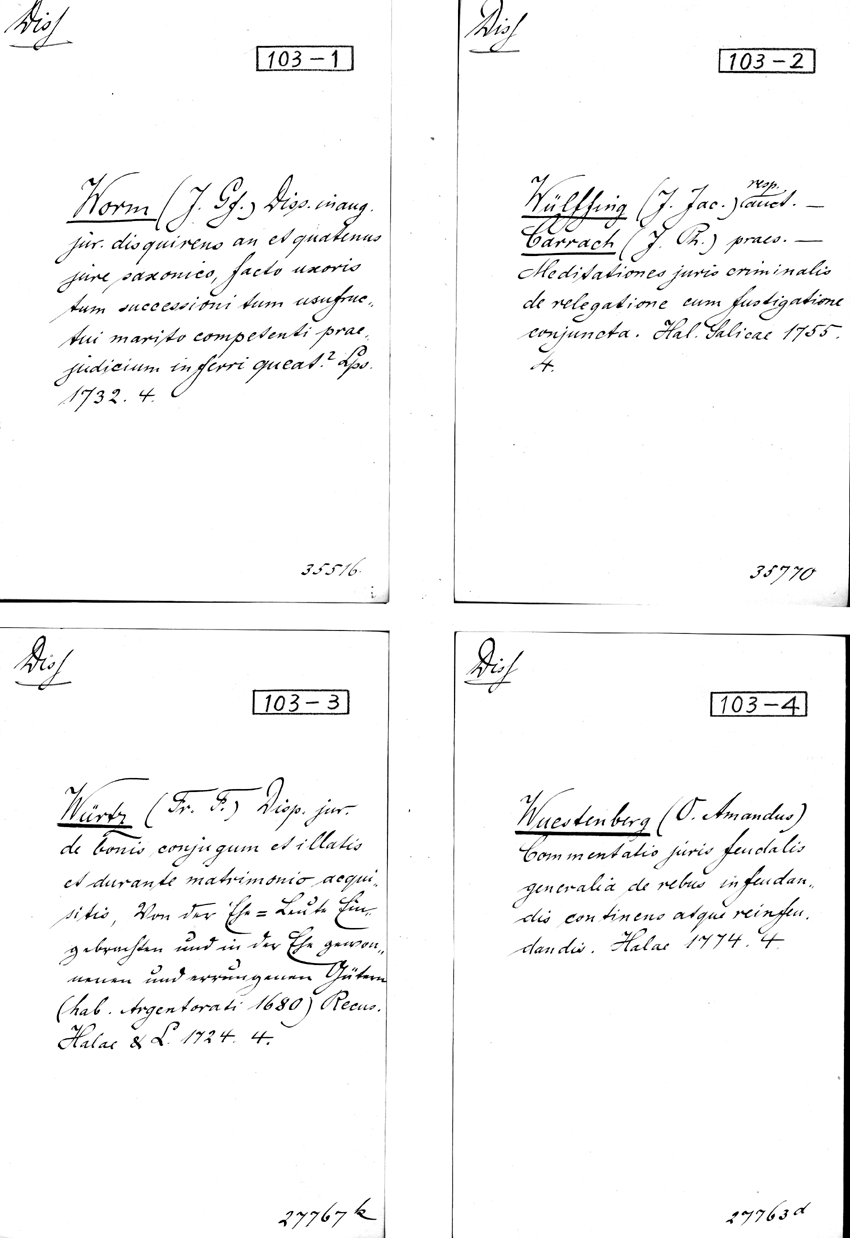 Diss
103-1
Worm (J. Gf.) Disp. inaug.
jur. disquirens an et quatenus
jure saxonico, facto uxoris
tum successioni tum usufruc-
tui marito competenti prae-
judicium inferri queat? Lps.
1732. 4.
35516
Diss
103-2
Wülffing (J. Jac.) resp. auct. —
Carrach (J. Ph.) praes. —
Meditationes juris criminalis
de relegatione cum fustigatione
conjuncta. Hal. Salicae 1755.
4.
35770
Diss
103-3
Würtz (Fr. F.) Disp. jur.
de bonis conjugum et illatis
et durante matrimonio acqui-
sitis, Von der Ehe=Leute Ein-
gebrachten und in der Ehe gewon-
nenen und errungenen Gütern
(hab. Argentorati 1680) Recus.
Halae & L. 1724. 4.
27767 k
Diss
103-4
Wuestenberg (O. Amandus)
Commentatio juris feudalis
generalia de rebus infeudan-
dis continens atque reinfeu-
dandis. Halae 1774. 4
27763 d